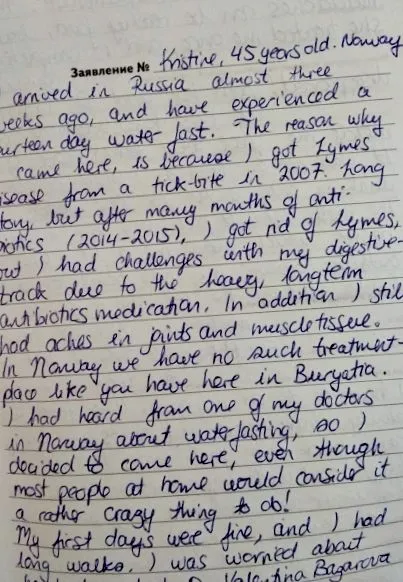 Заявление № Kristine, 45 years old. Norway
arrived in Russia almost three
weeks ago, and have experienced a
urteen day water fast. The reason why
came here, is because I got Lymes
isease from a tick-bite in 2007. Long
tory, but after many months of anti-
biotics (2014-2015), I got rid of Lymes,
but I had challenges with my digestive-
track due to the heavy, longterm
antibiotics medication. In addition I still
had aches in joints and muscletissue.
In Norway we have no such treatment-
place like you have here in Buryatia.
I had heard from one of my doctors
in Norway about water-fasting, so I
decided to come here, even though
most people at home would consider it
a rather crazy thing to do!
My first days were fine, and I had
long walks. I was worried about
Valentina Bagarova